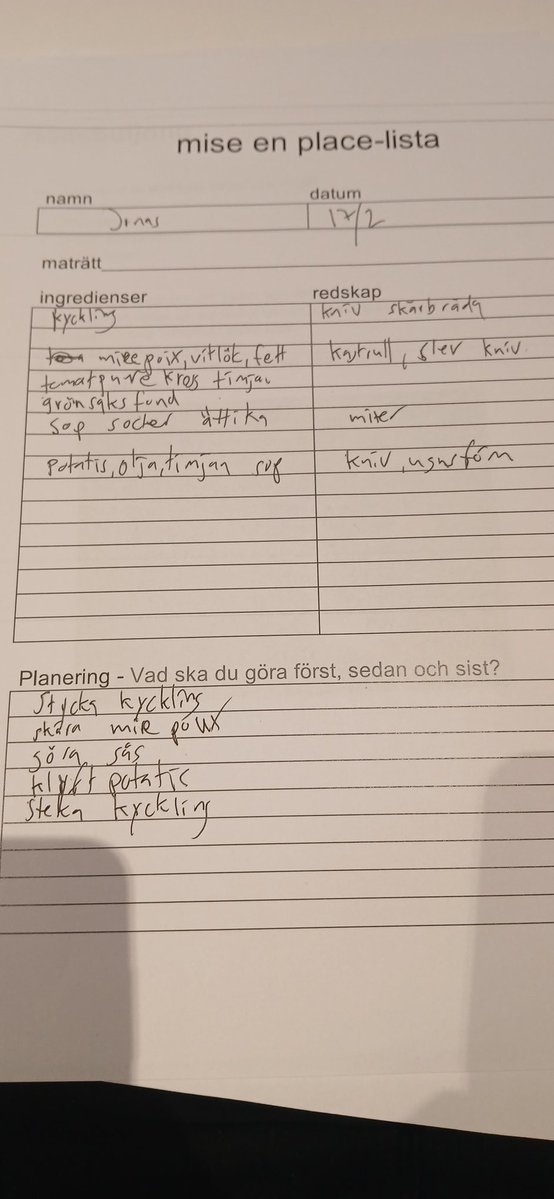 mise en place-lista
namn datum
Jonas 17/2
maträtt
ingredienser redskap
kyckling kniv skärbräda
mirepoix, vitlök, fett kastrull, slev kniv
tomatpuré kros timjan
grönsaksfond
socker ättika mixer
potatis, olja, timjan kniv, ugnsform
Planering - Vad ska du göra först, sedan och sist?
Stycka kyckling
skära mire poux
göra sås
klyft potatis
Steka kyckling